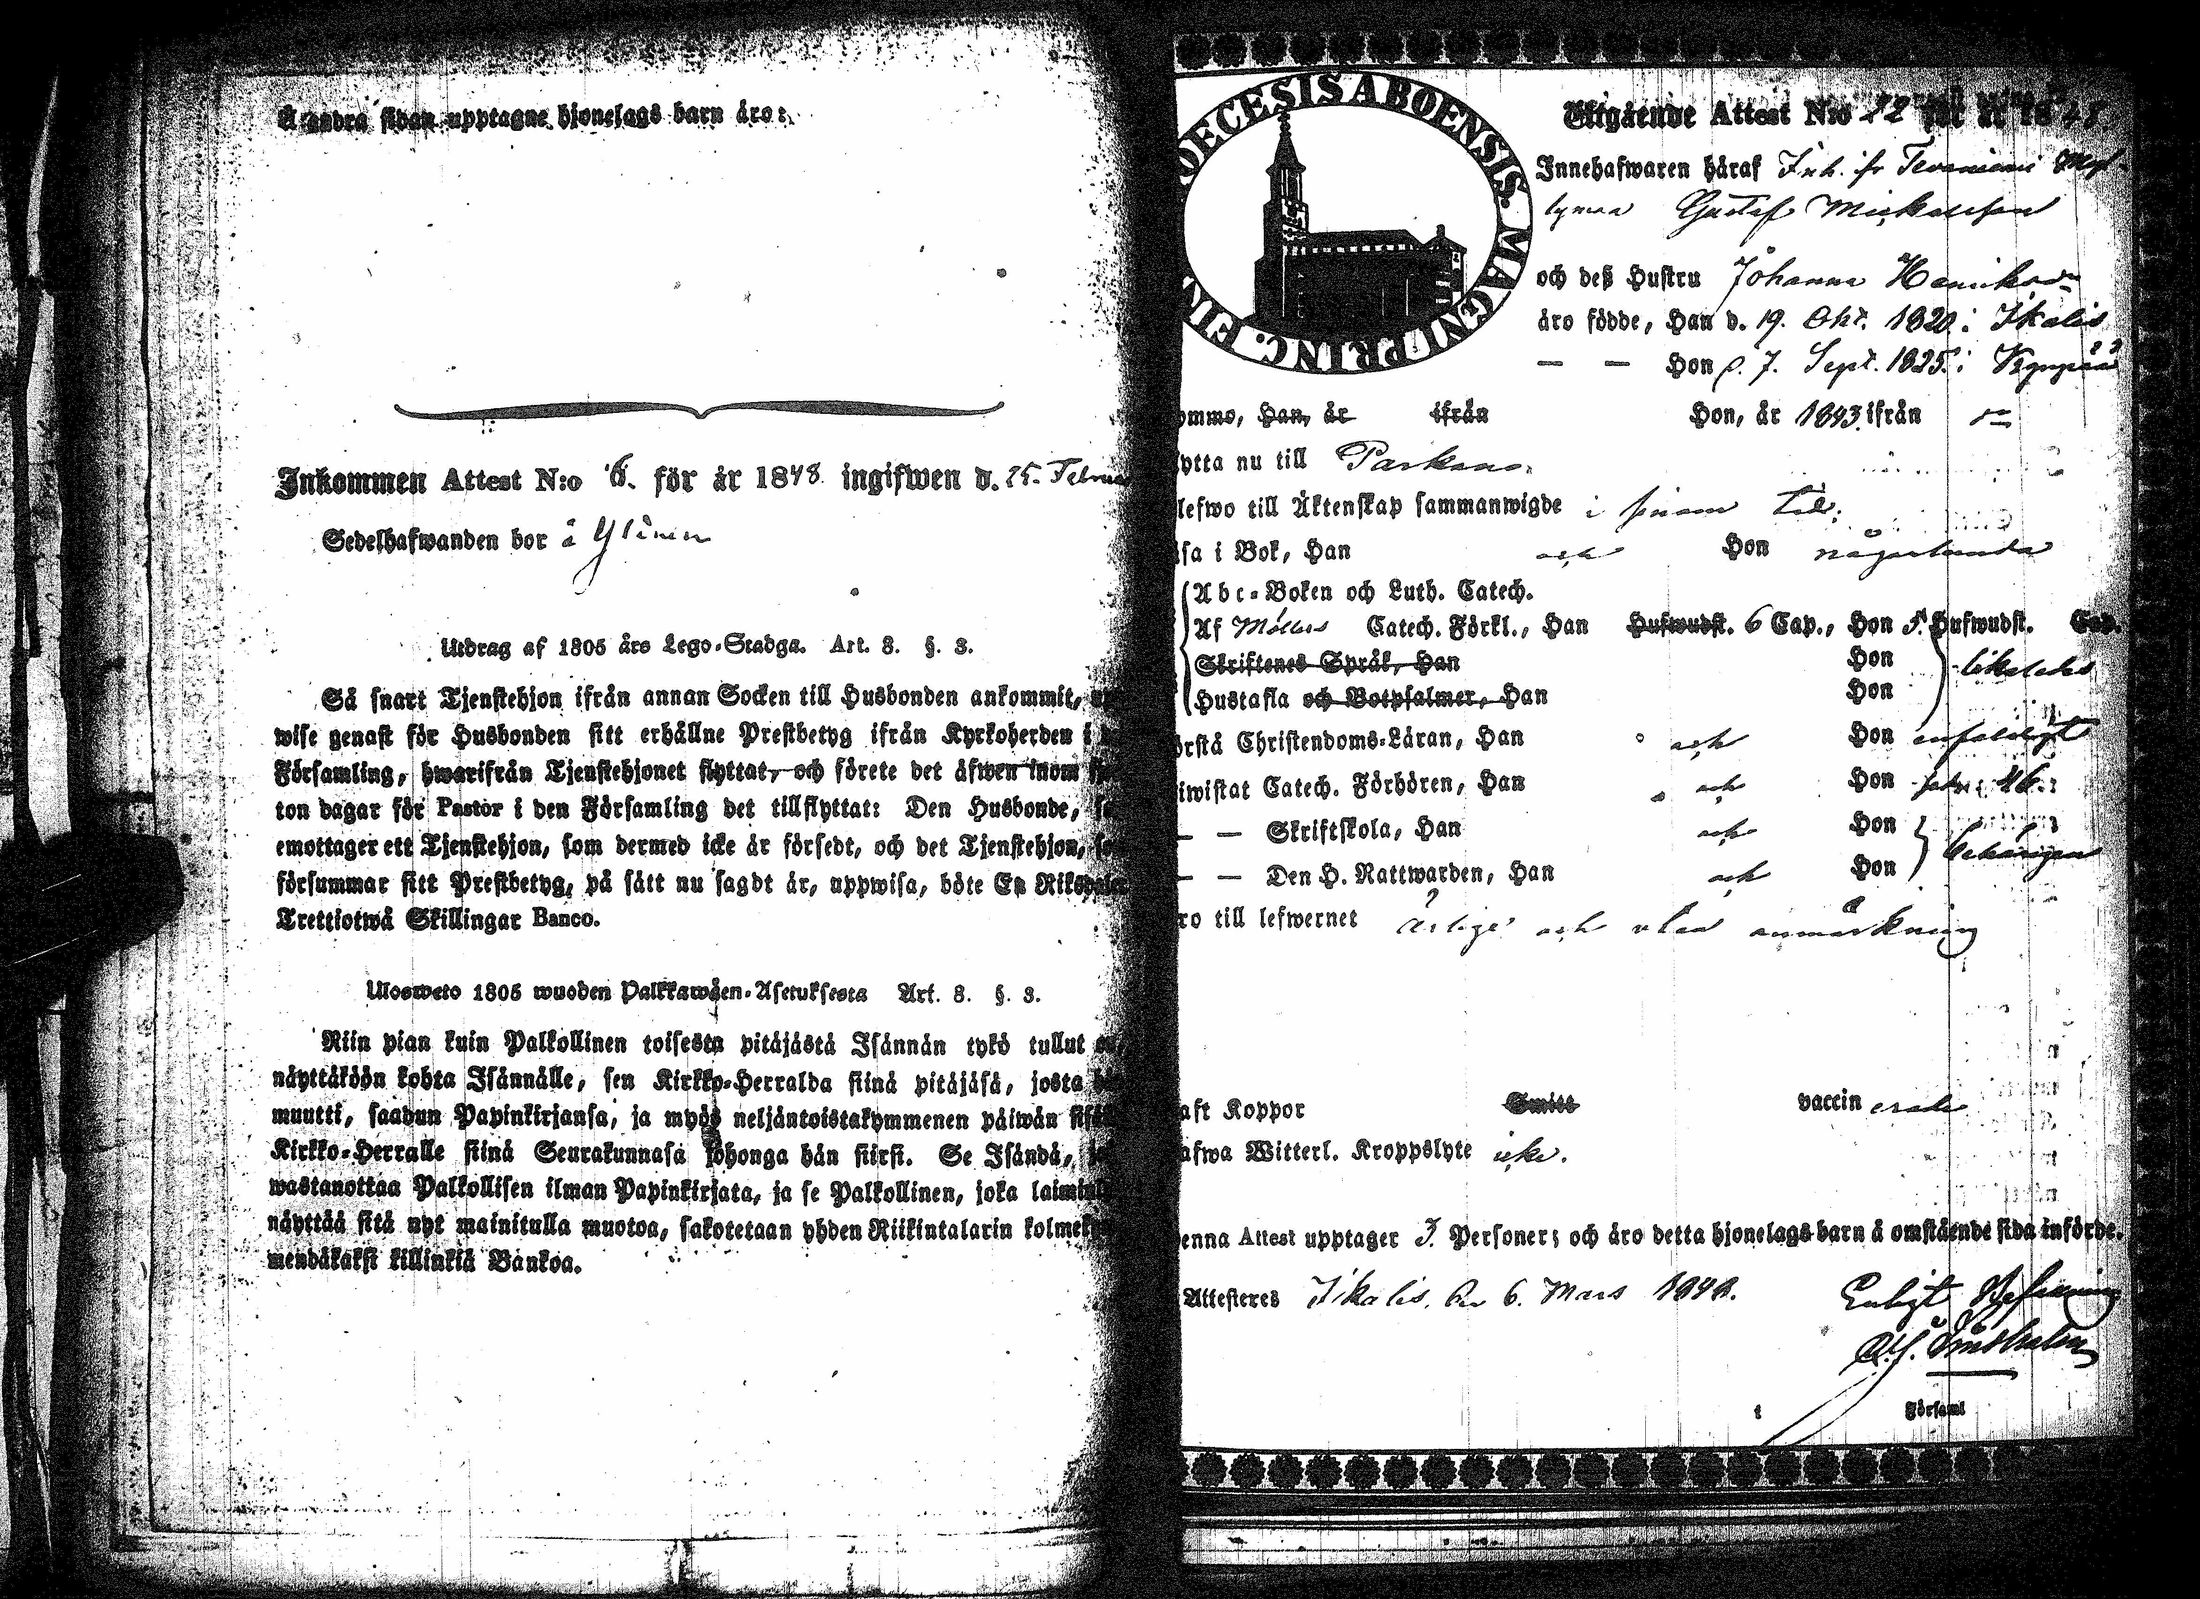 Å andra sidan upptagne hjonelags barn äro:
Inkommen Attest N:o 6. för år 1848 ingifwen d. 25. Februa
Sedelhafwanden bor å
Utdrag af 1805 års Lego-Stadga. Art. 8. §. 3.
Så snart Tjenstehjon ifrån annan Socken till Husbonden ankommit,
wise genast för Husbonden sitt erhållne Prestbetyg ifrån Kyrkoherden i
Församling, hwarifrån Tjenstehjonet flyttat, och förete det äfwen inom
ton dagar för Pastor i den Församling det tillflyttat: Den Husbonde,
emottager ett Tjenstehjon, som dermed icke är försedt, och det Tjenstehjon,
försummar sitt Prestbetyg, på sätt nu sagdt är, uppwisa, böte En Riksdaler
Trettiotwå Skillingar Banco.
Ulosweto 1805 wuoden Palkkawäen-Asetuksesta Art. 8. §. 3.
Niin pian kuin Palkollinen toisesta pitäjästä Isännän tykö tullut
näyttäköön kohta Isännälle, sen Kirkko-Herralda siinä pitäjäsä, josta
muutti, saadun Papinkirjansa, ja myös neljäntoistakymmenen päiwän
Kirkko-Herralle siinä Seurakunnasa kohonga hän siirsi. Se Isändä,
wastanottaa Palkollisen ilman Papinkirjata, ja se Palkollinen, joka
näyttää sitä nyt mainitulla muotoa, sakotetaan yhden Riikintalarin
mendäkaksi killinkiä Bankoa.
DIOECESIS ABOENSIS. MAGNI PRINC. FINL
Utgående Attest N:o 22 för år 1848.
Innehafwaren häraf Inh. fr
Gustaf Mickelsson
och deß Hustru Johanna
äro födde, Han d. 19. Okt. 1820 i Ikalis
— — Hon d. 7. Sept. 1825 i Kyrö
ommo, Han, år ifrån Hon, år 1843 ifrån
ytta nu till Parkano
lefwo till Äktenskap sammanwigde i
sa i Bok, Han och Hon någorlunda
Abc-Boken och Luth. Catech.
Af Möllers Catech. Förkl., Han Hufwudst. 6 Cap., Hon 5 Hufwudst. Cap.
Skriftenes Språk, Han Hon
Hustafla och Botpsalmer, Han Hon likaledes
örstå Christendoms-Läran, Han och Hon enfaldigt
iwistat Catech. Förhören, Han och Hon 46.
— — Skriftskola, Han och Hon
— — Den H. Nattwarden, Han och Hon behörigen
ro till lefwernet ärlige och utan anmärkning
aft Koppor Smitt vaccin
afwa Witterl. Kroppslyte icke.
enna Attest upptager 3. Personer; och äro detta hjonelags barn å omstående sida införde.
Attesteras Ikalis, den 6. Mars 1848.
Enligt
i Församl